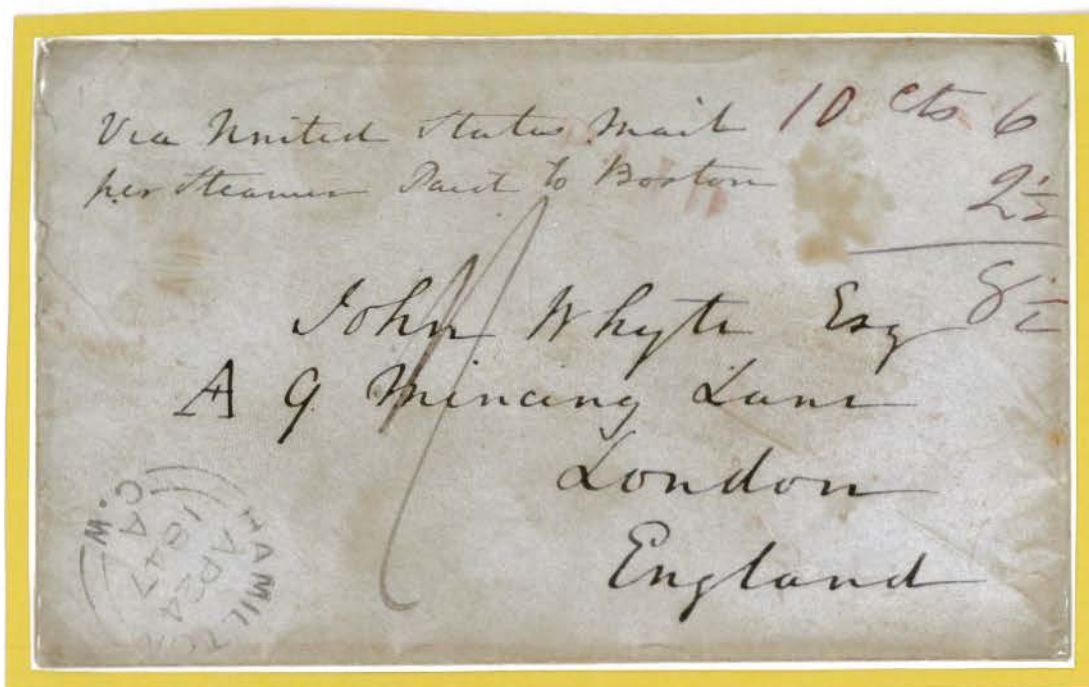 Via United States Mail 10 cts 6
per Steamer Paid to Boston 2½
8½
John Whyte Esq
A 9 Mincing Lane
London
England
HAMILTON
AP 24
1847
C.W.